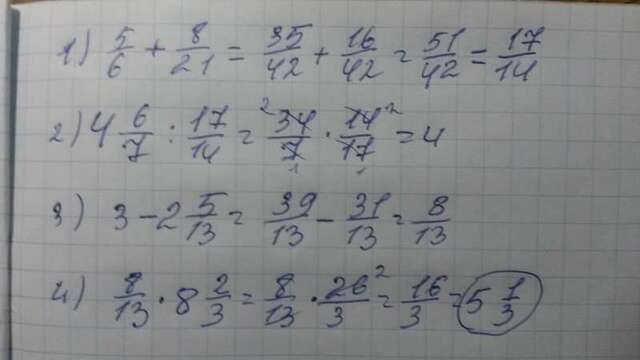 1) 5/6 + 8/21 = 35/42 + 16/42 = 51/42 = 17/14
2) 4 6/7 : 17/14 = 2 34/7 1 · 14 2/17 1 = 4
3) 3 - 2 5/13 = 39/13 - 31/13 = 8/13
4) 8/13 · 8 2/3 = 8/13 · 26 2/3 = 16/3 = 5 1/3